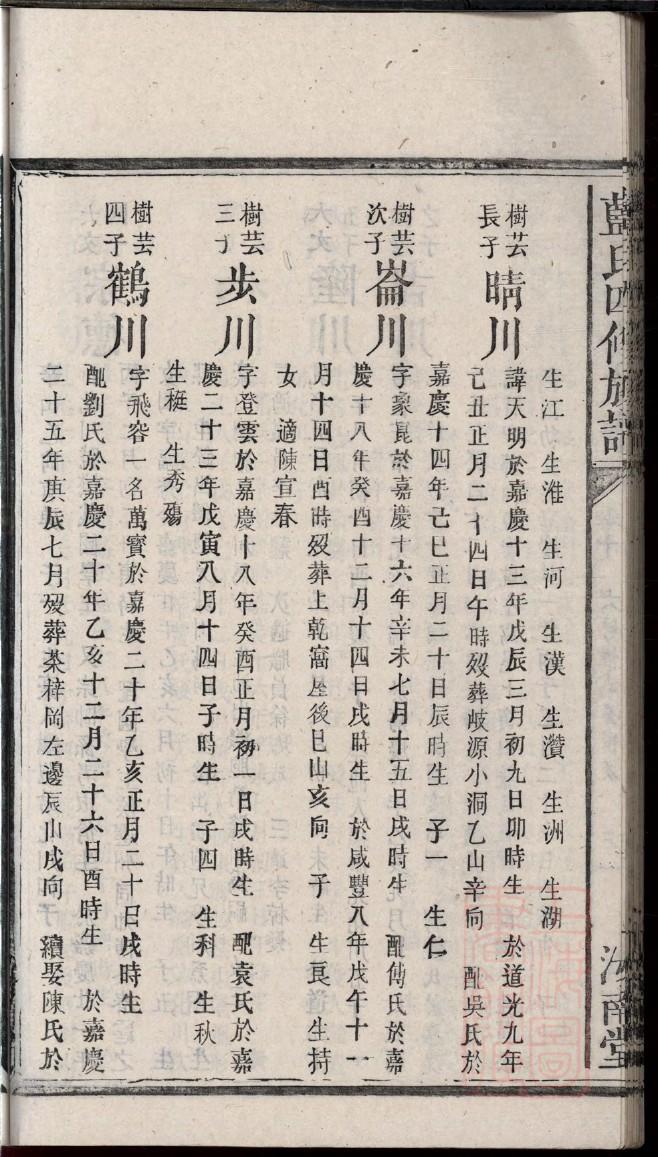 藍氏四修族譜
汝南堂
生江 生淮 生河 生漢 生瓚 生洲 生湖
樹芸長子晴川
諱天明於嘉慶十三年戊辰三月初九日卯時生 於道光九年
己丑正月二十四日午時歿葬歧源小洞乙山辛向 配吳氏於
嘉慶十四年己巳正月二十日辰時生 子一 生仁
樹芸次子崙川
字象崑於嘉慶十六年辛未七月十五日戌時生 配傅氏於嘉
慶十八年癸酉十二月十四日戌時生 於咸豐八年戊午十一
月十四日酉時歿葬上乾窩屋後巳山亥向 子 生良 生持
女 適陳宣春
樹芸三子步川
字登雲於嘉慶十八年癸酉正月初一日戌時生 配袁氏於嘉
慶二十三年戊寅八月十四日子時生 子四 生科 生秋
生糚 生秀殤
樹芸四子鶴川
字飛容一名萬寶於嘉慶二十年乙亥正月二十日戌時生
配劉氏於嘉慶二十年乙亥十二月二十六日酉時生 於嘉慶
二十五年庚辰七月歿葬茶梓岡左邊辰山戌向 續娶陳氏於